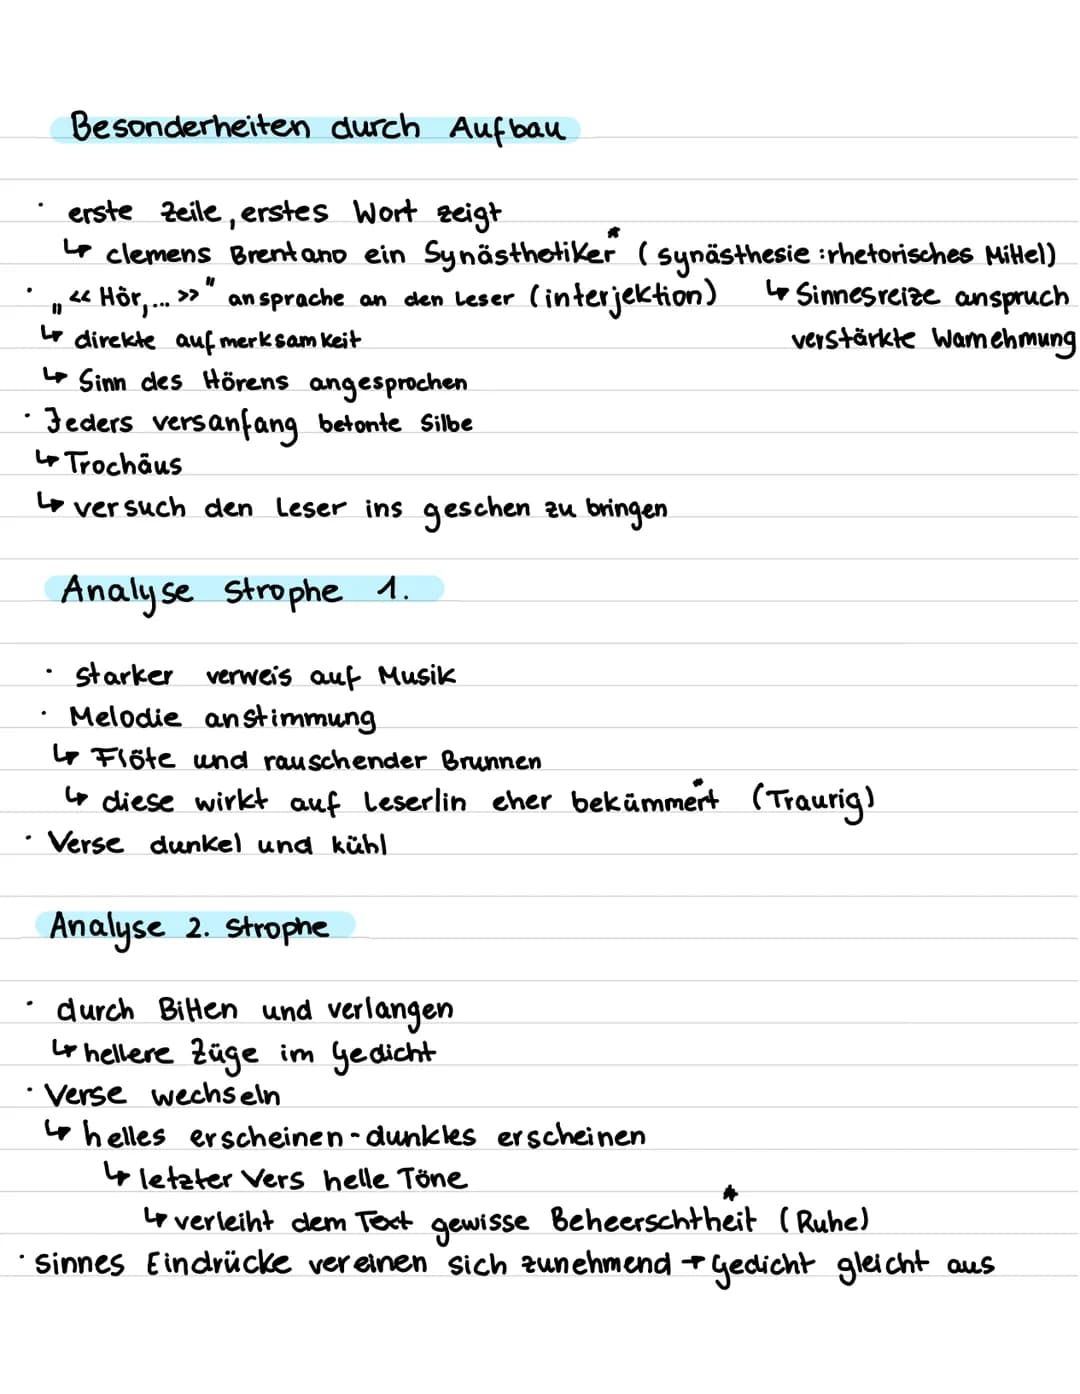 Besonderheiten durch Aufbau
· erste Zeile, erstes Wort zeigt
↳ clemens Brentano ein Synästhetiker* (synästhesie :rhetorisches Mittel)
· „ << Hör,... >>" ansprache an den Leser (interjektion) ↳ Sinnesreize anspruch
↳ direkte aufmerksamkeit verstärkte Warnehmung
↳ Sinn des Hörens angesprochen
· Jeders versanfang betonte Silbe
↳ Trochäus
↳ versuch den Leser ins geschen zu bringen
Analyse Strophe 1.
· starker verweis auf Musik
· Melodie anstimmung
↳ Flöte und rauschender Brunnen
↳ diese wirkt auf Leser/in eher bekümmert* (Traurig)
· Verse dunkel und kühl
Analyse 2. Strophe
· durch Bitten und verlangen
↳ hellere Züge im Gedicht
· Verse wechseln
↳ helles erscheinen - dunkles erscheinen
↳ letzter Vers helle Töne
↳ verleiht dem Text gewisse Beheerschtheit* (Ruhe)
· sinnes Eindrücke vereinen sich zunehmend → Gedicht gleicht aus